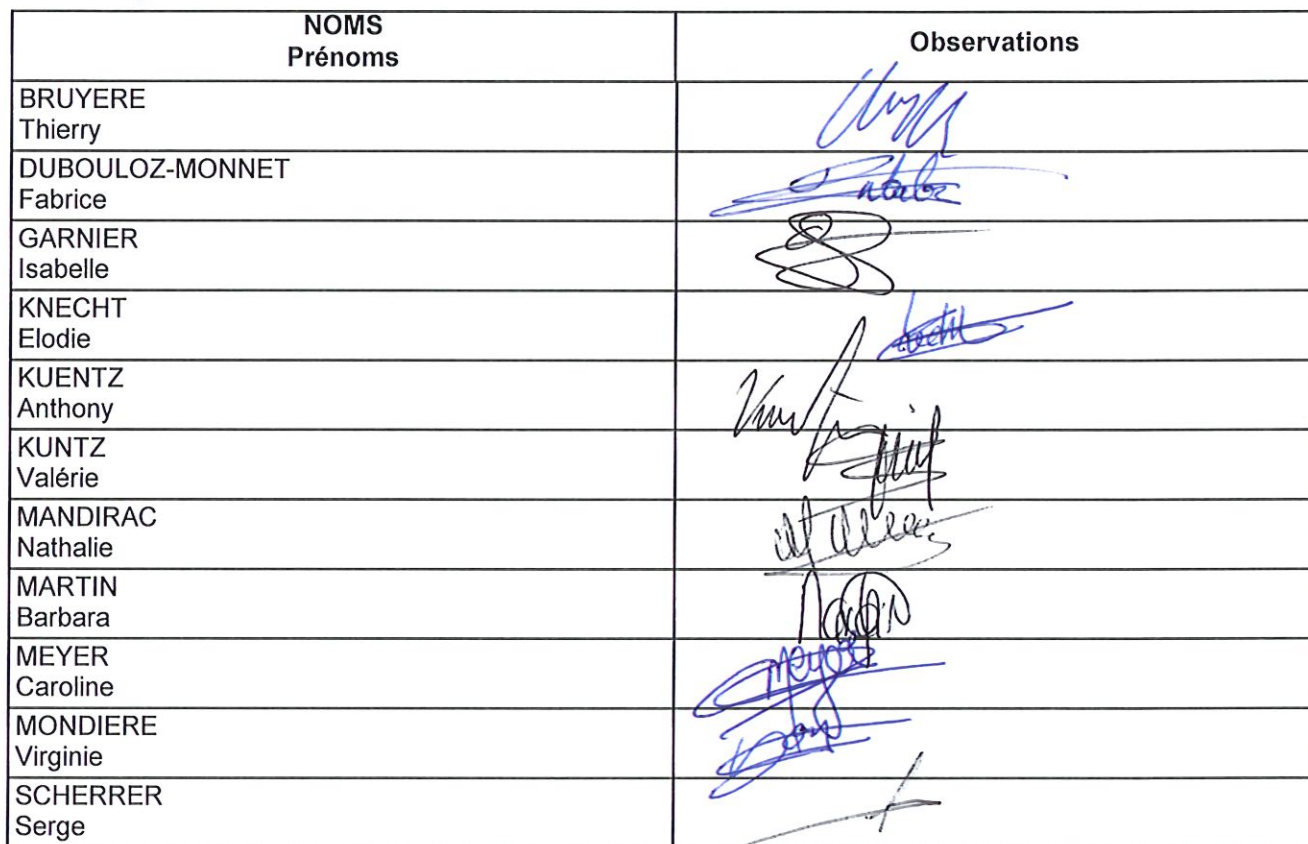 NOMS
Prénoms
Observations
BRUYERE
Thierry
DUBOULOZ-MONNET
Fabrice
GARNIER
Isabelle
KNECHT
Elodie
KUENTZ
Anthony
KUNTZ
Valérie
MANDIRAC
Nathalie
MARTIN
Barbara
MEYER
Caroline
MONDIERE
Virginie
SCHERRER
Serge